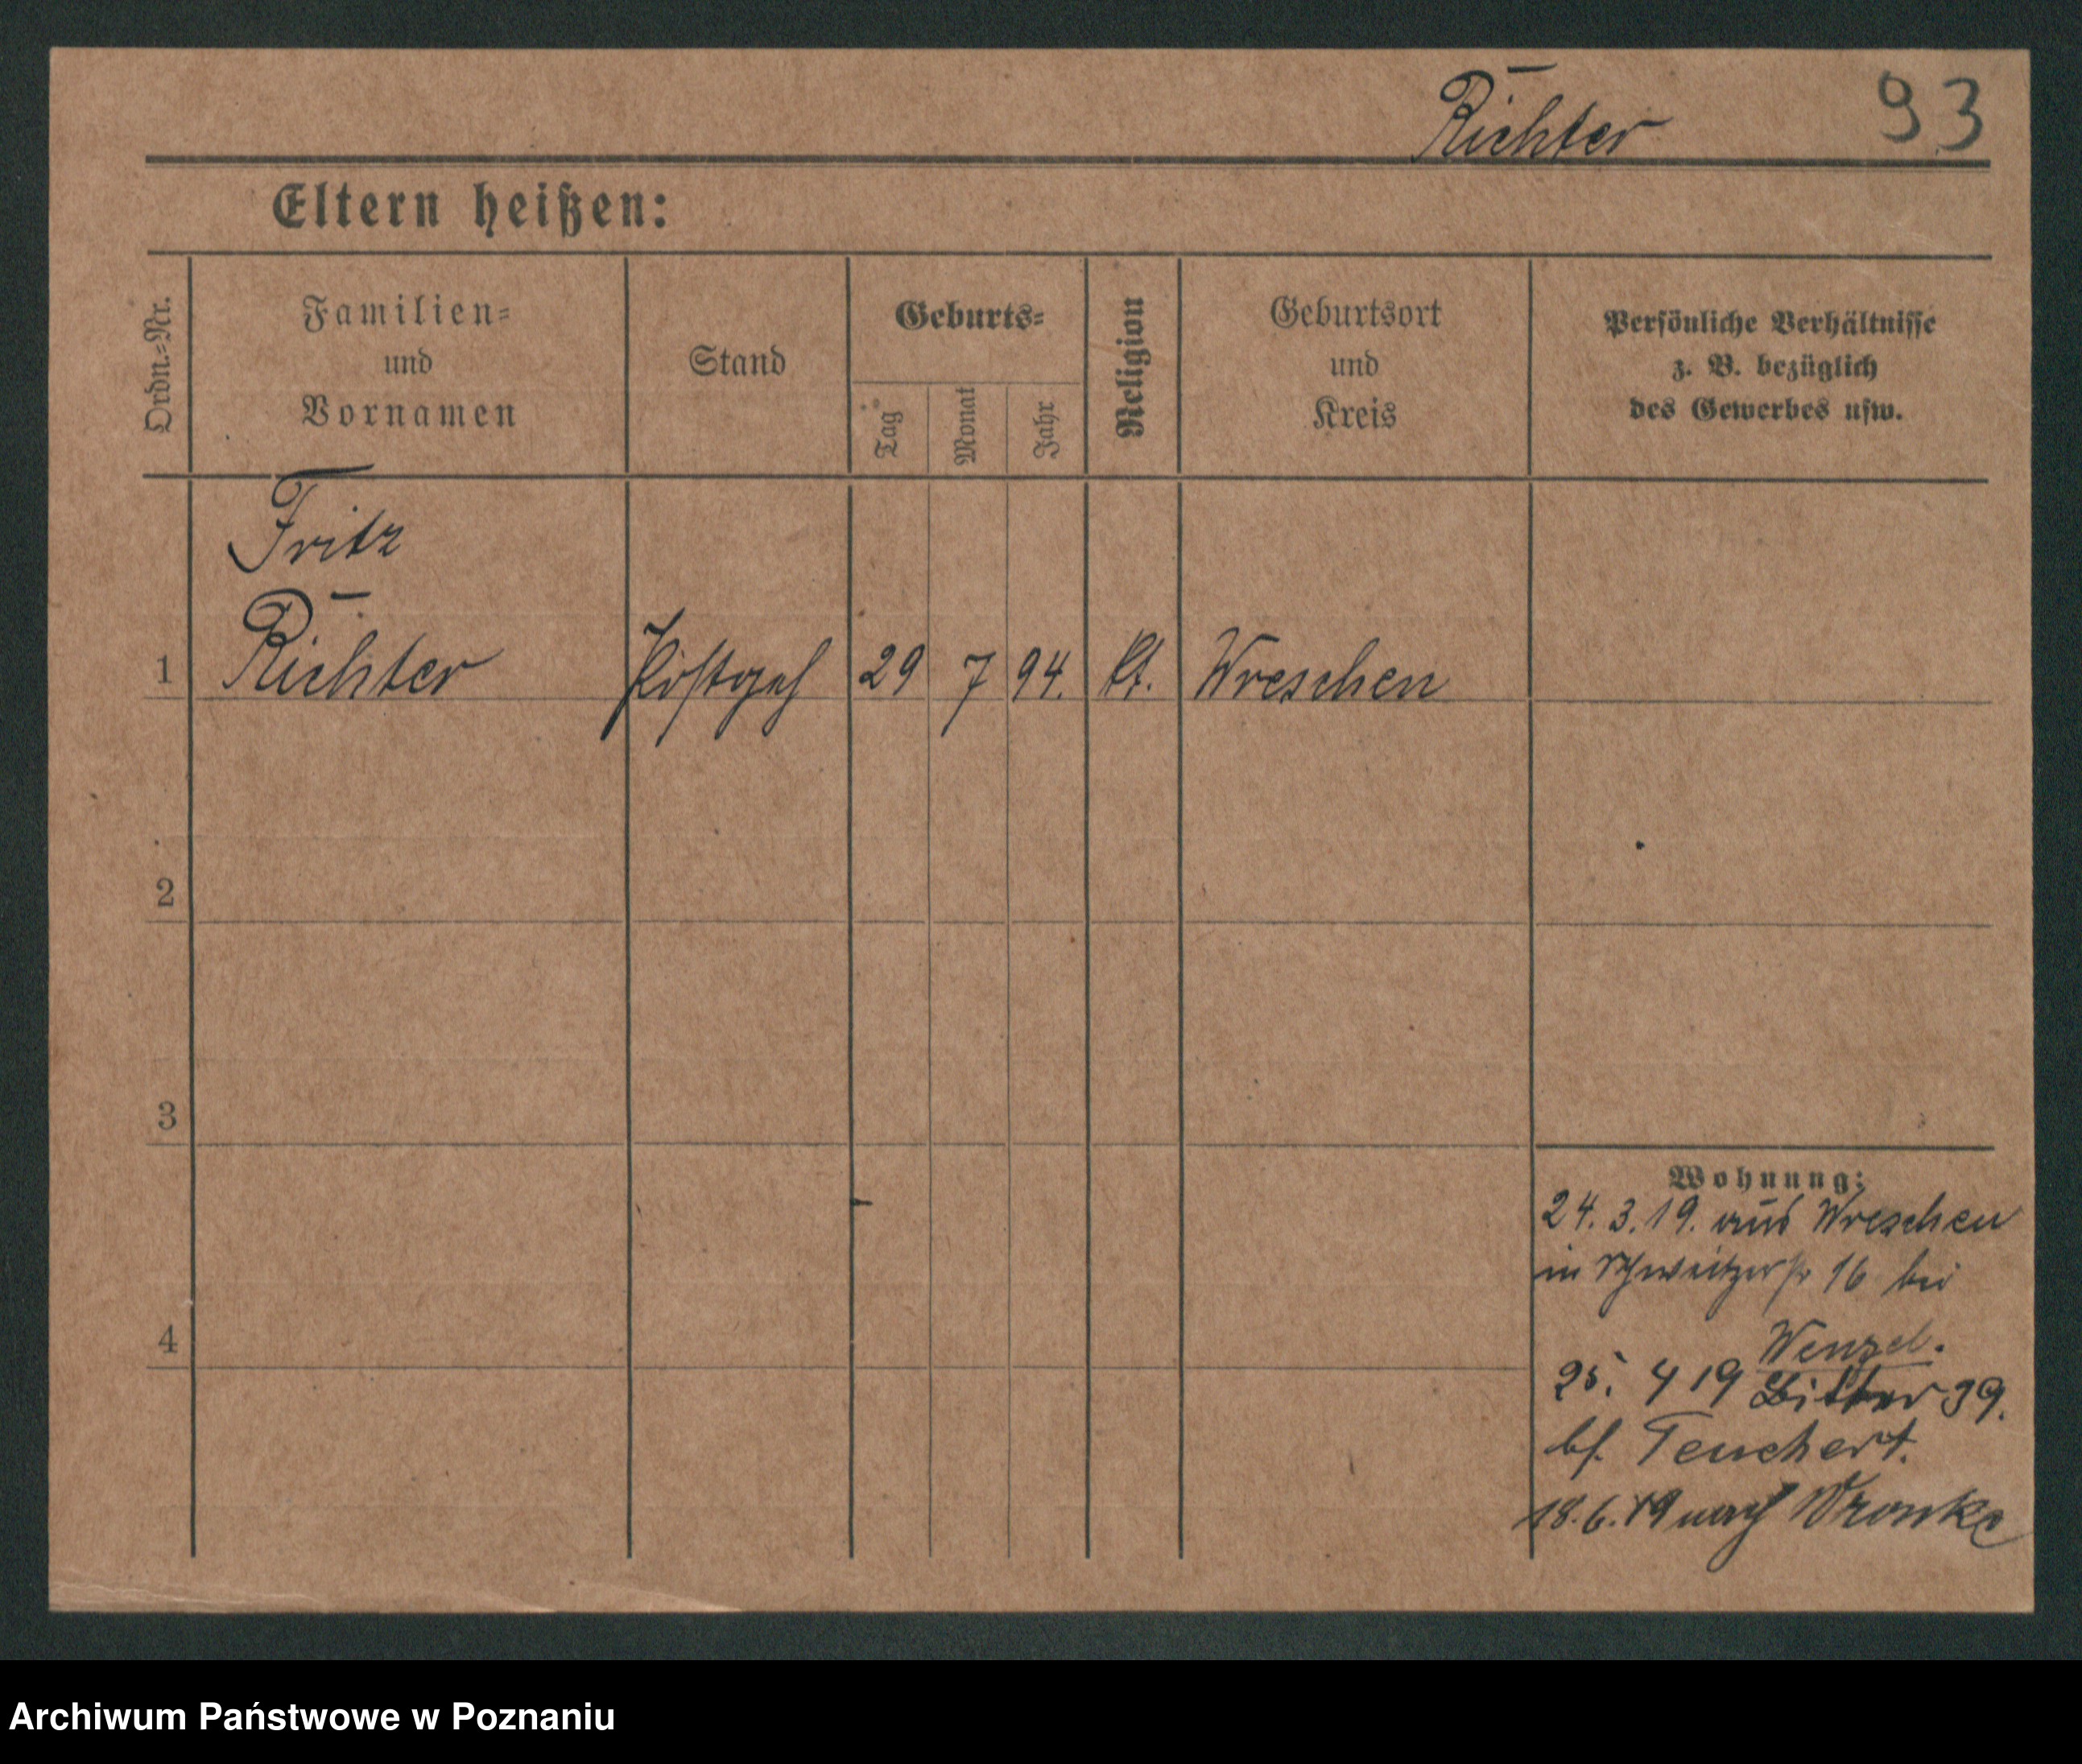 Richter 93
Eltern heißen:
Ordn.-Nr.
Familien-
und
Vornamen
Stand
Geburts-
Tag
Monat
Jahr
Religion
Geburtsort
und
Kreis
Persönliche Verhältnisse
z. B. bezüglich
des Gewerbes usw.
Fritz
1 Richter Postgeh 29 7 94. kt. Wreschen
2
3
4
Wohnung:
24.3.19. aus Wreschen
in Schweitzerstr 16 bei
Wenzel.
25. 4 19 Bitter 39.
bf. Teuchert.
18.6.19 nach Wronke
Archiwum Państwowe w Poznaniu